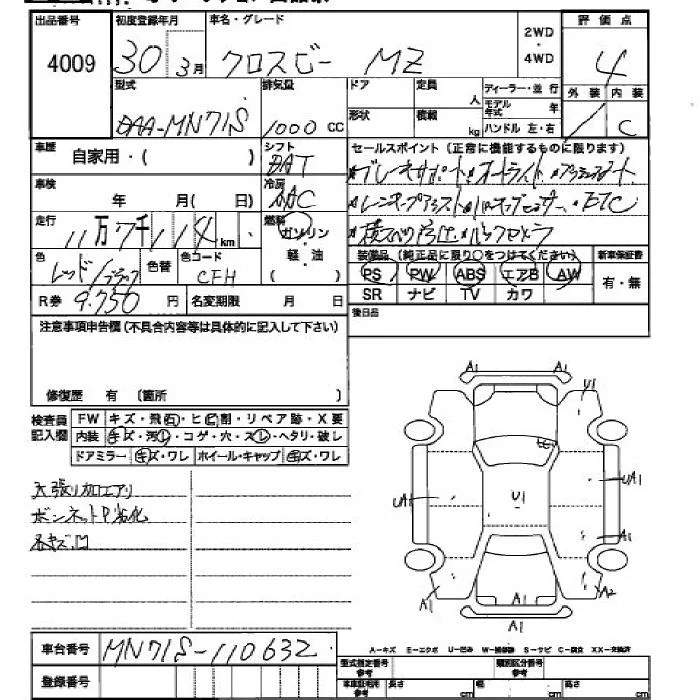 出品番号 4009
初度登録年月 30 3月
車名・グレード クロスビー MZ
2WD・4WD
評価点 4
外装 内装 C
型式 DAA-MN71S
排気量 1000 CC
ドア 形状
定員 人
積載 kg
ディーラー・並行
モデル年式 年
ハンドル 左・右
車歴 自家用・( )
シフト DAT
車検 年 月( 日)
冷房 AAC
セールスポイント(正常に機能するものに限ります)
・ブレーキサポート・オートライト
・レーンキープアシスト ・ETC
・横スベリ防止・バックカメラ
走行 11万7千114km
燃料 ガソリン・軽油 ( )
色 レッド/ブラック
色替
色コード CFH
R券 9,750円
名変期限 月 日
装備品(純正品に限り○をつけてください)
PS PW ABS エアB AW
SR ナビ TV カワ
新車保証書 有・無
後日品
注意事項申告欄(不具合内容等は具体的に記入して下さい)
修復歴 有 (箇所 )
検査員記入欄
FW キズ・飛石・ヒビ割・リペア跡・X要
内装 キズ・汚レ・コゲ・穴・スレ・ヘタリ・破レ
ドアミラー キズ・ワレ ホイール・キャップ キズ・ワレ
天張り加工アリ
ボンネットP劣化
各キズ凹
A1
A1
U1
UA1
U1
UA1
A1
A1
A2
A1
車台番号 MN71S-110632
登録番号
A-キズ E-エクボ U-凹み W-補修跡 S-サビ C-腐食 XX-交換済
型式指定番号 参考
類別区分番号 参考
車庫証明用 参考 長さ cm 幅 cm 高さ cm